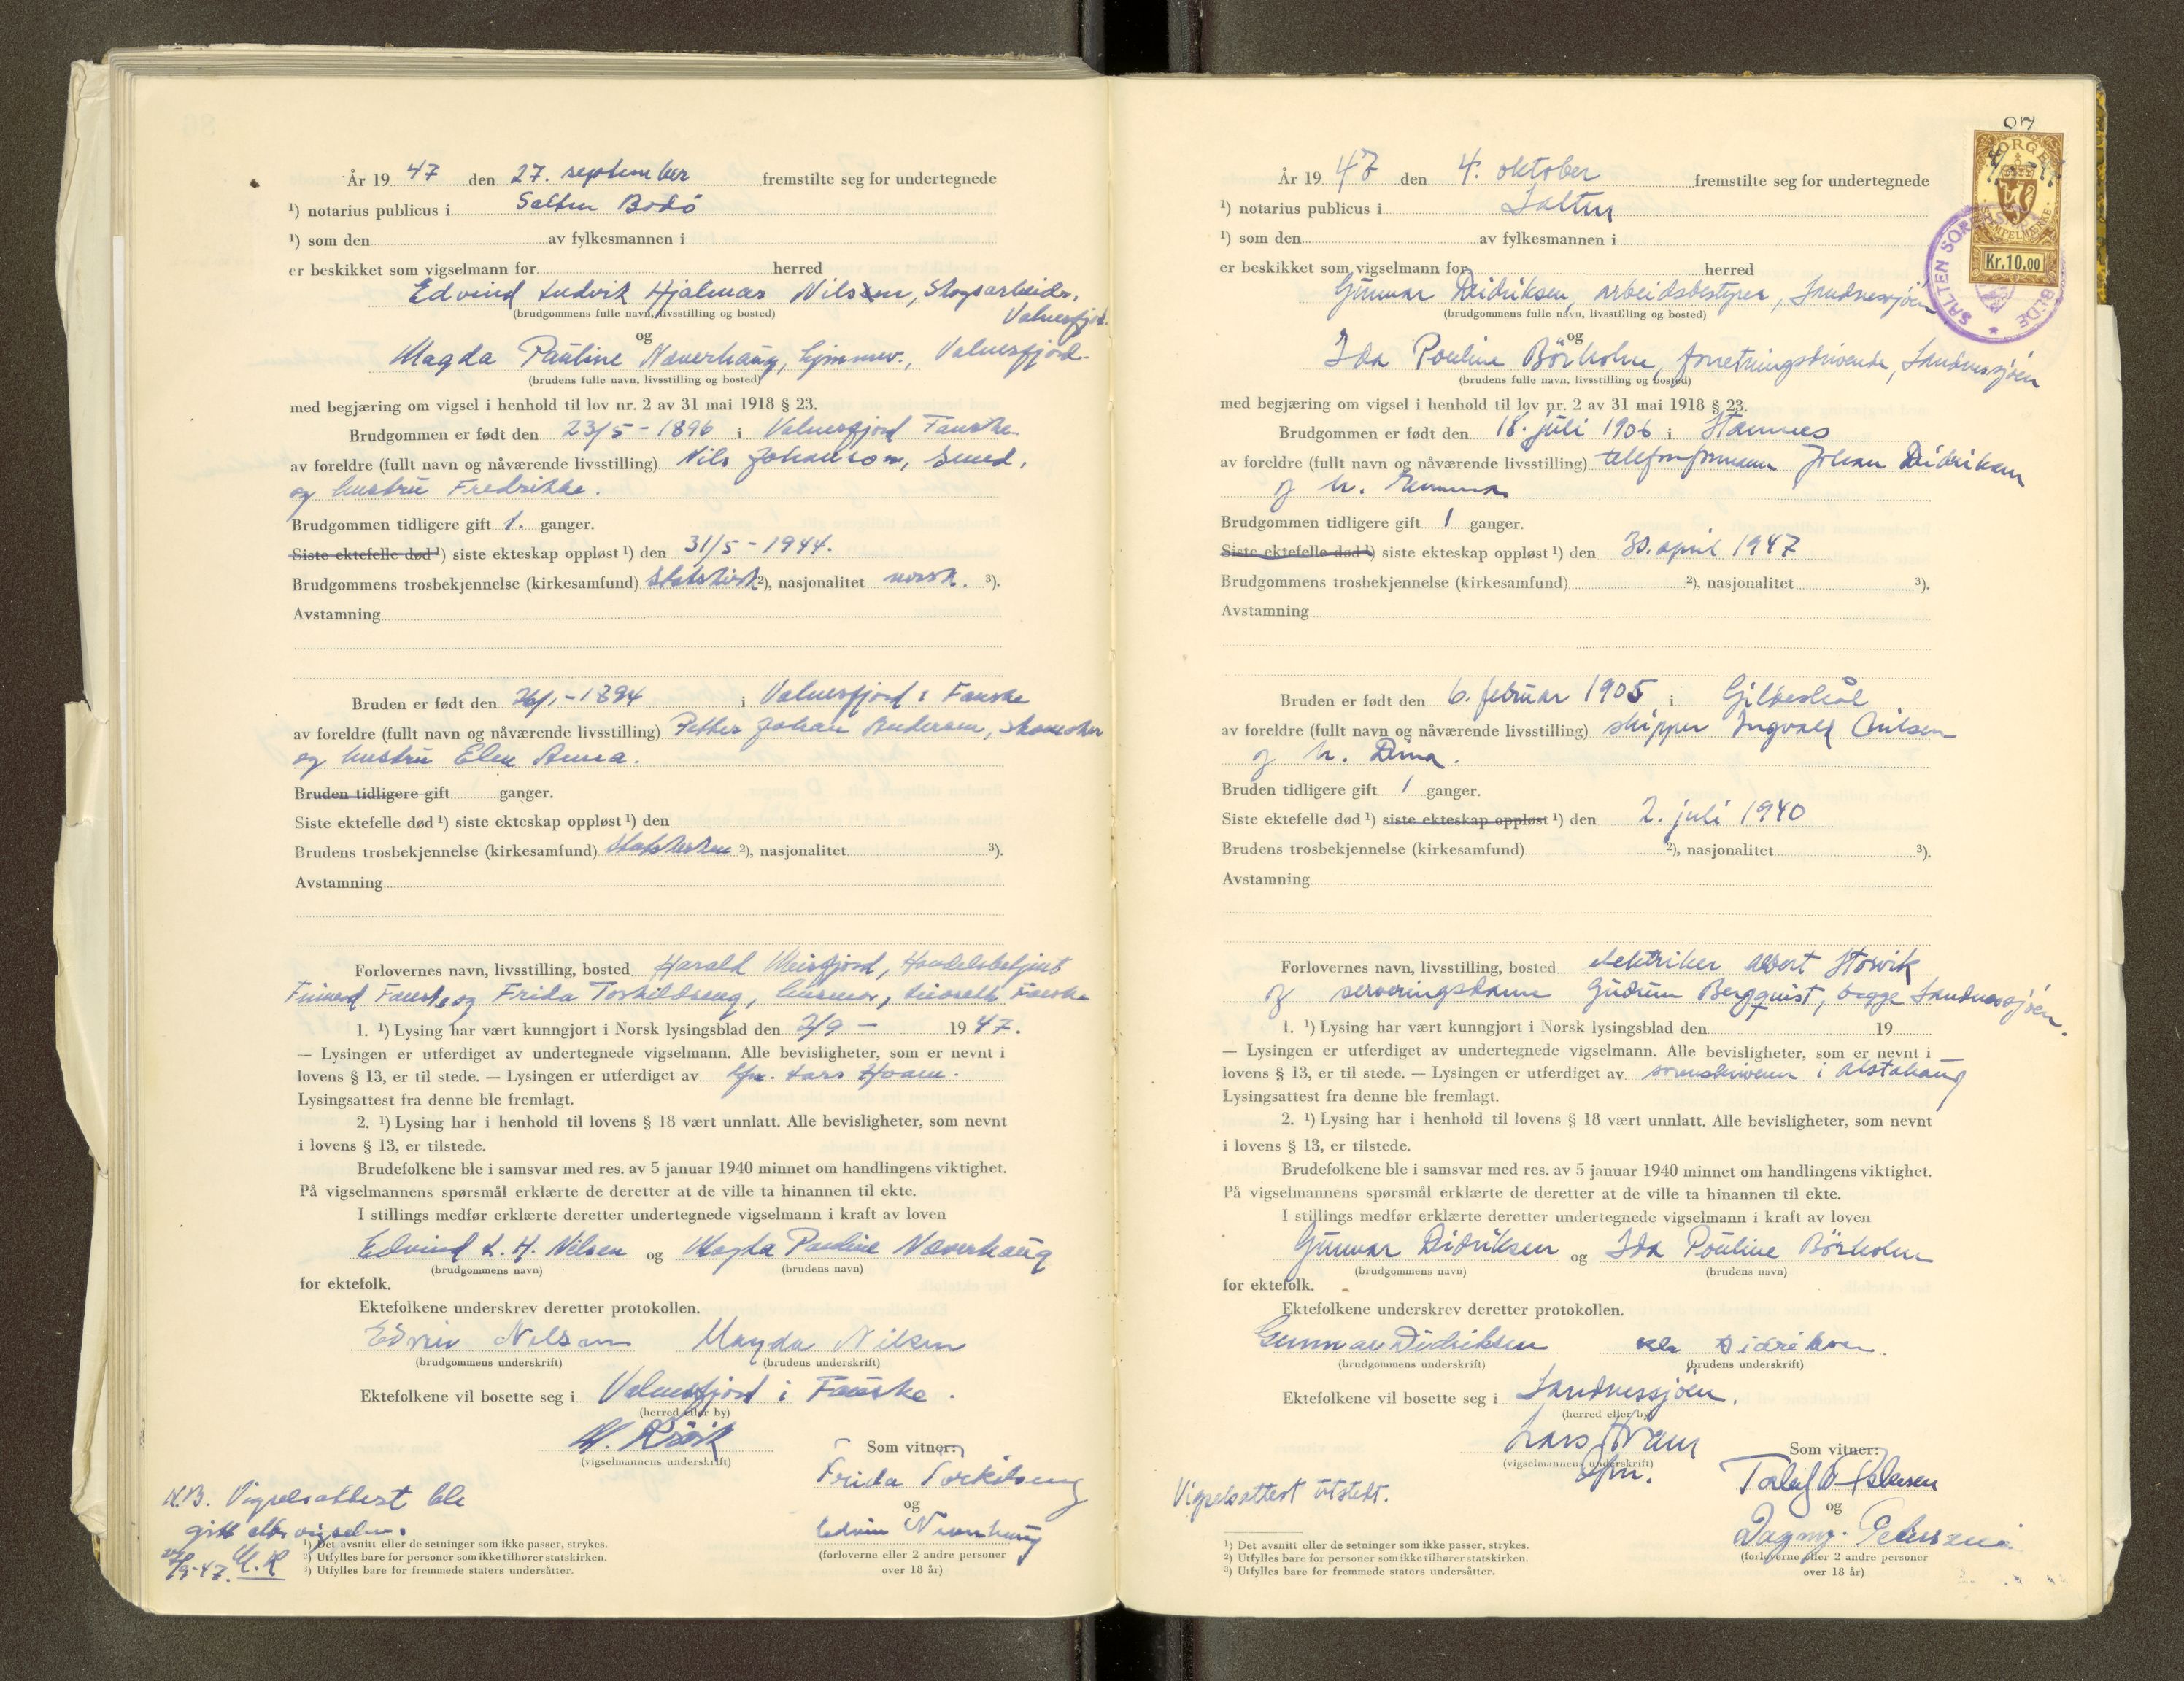 År 19 47 den 27. september fremstilte seg for undertegnede
¹) notarius publicus i Salten Bodö
¹) som den av fylkesmannen i
er beskikket som vigselmann for herred
Edvind Ludvik Hjalmar Nilsen, Skogsarbeider,
Valnesfjord.
(brudgommens fulle navn, livsstilling og bosted)
og
Magda Pauline Næverhaug, hjemmev., Valnesfjord
(brudens fulle navn, livsstilling og bosted)
med begjæring om vigsel i henhold til lov nr. 2 av 31 mai 1918 § 23.
Brudgommen er født den 23/5 - 1896 i Valnesfjord Fauske
av foreldre (fullt navn og nåværende livsstilling) Nils Johanson, Smed,
og hustru Fredrikke.
Brudgommen tidligere gift 1. ganger.
Siste ektefelle død ¹) siste ekteskap oppløst ¹) den 31/5 - 1944.
Brudgommens trosbekjennelse (kirkesamfund) Statskirk ²), nasjonalitet norsk. ³).
Avstamning
Bruden er født den 26/1 - 1894 i Valnesfjord i Fauske
av foreldre (fullt navn og nåværende livsstilling) Petter Johan Andersen, Skomaker
og hustru Elen Anna.
Bruden tidligere gift ganger.
Siste ektefelle død ¹) siste ekteskap oppløst ¹) den
Brudens trosbekjennelse (kirkesamfund) Statskirken ²), nasjonalitet ³).
Avstamning
Forlovernes navn, livsstilling, bosted Harald Meisfjord, Handelsbetjent
Fauske og Frida Torkildseng, husmor, Fauske
1. ¹) Lysing har vært kunngjort i Norsk lysingsblad den 2/9 - 19 47.
— Lysingen er utferdiget av undertegnede vigselmann. Alle bevisligheter, som er nevnt i
lovens § 13, er til stede. — Lysingen er utferdiget av Lars Hvam.
Lysingsattest fra denne ble fremlagt.
2. ¹) Lysing har i henhold til lovens § 18 vært unnlatt. Alle bevisligheter, som nevnt
i lovens § 13, er tilstede.
Brudefolkene ble i samsvar med res. av 5 januar 1940 minnet om handlingens viktighet.
På vigselmannens spørsmål erklærte de deretter at de ville ta hinannen til ekte.
I stillings medfør erklærte deretter undertegnede vigselmann i kraft av loven
Edvind L. H. Nilsen og Magda Pauline Næverhaug
(brudgommens navn) (brudens navn)
for ektefolk.
Ektefolkene underskrev deretter protokollen.
Edvin Nilsen Magda Nilsen
(brudgommens underskrift) (brudens underskrift)
Ektefolkene vil bosette seg i Valnesfjord i Fauske.
(herred eller by)
(vigselmannens underskrift)
Som vitner:
Frida Torkildseng
og
Edvin Næverhaug
(forloverne eller 2 andre personer
over 18 år)
N.B. Vigselsattest ble
gitt etter vigselen.
27/9-47. M.R
¹) Det avsnitt eller de setninger som ikke passer, strykes.
²) Utfylles bare for personer som ikke tilhører statskirken.
³) Utfylles bare for fremmede staters undersåtter.
87
NORGE
STEMPELMERKE
Kr.10.00
SALTEN SORENSKRIVEREMBEDE
År 19 47 den 4. oktober fremstilte seg for undertegnede
¹) notarius publicus i Salten
¹) som den av fylkesmannen i
er beskikket som vigselmann for herred
Gunnar Didriksen, arbeidsbestyrer, Sandnessjöen
(brudgommens fulle navn, livsstilling og bosted)
og
Ida Pouline Börholm, forretningsdrivende, Sandnessjöen
(brudens fulle navn, livsstilling og bosted)
med begjæring om vigsel i henhold til lov nr. 2 av 31 mai 1918 § 23.
Brudgommen er født den 18. juli 1906 i Stamnes
av foreldre (fullt navn og nåværende livsstilling) telefonformann Johan Didriksen
og h. Emma
Brudgommen tidligere gift 1 ganger.
Siste ektefelle død ¹) siste ekteskap oppløst ¹) den 30. april 1947
Brudgommens trosbekjennelse (kirkesamfund) ²), nasjonalitet ³).
Avstamning
Bruden er født den 6. februar 1905 i Gildeskål
av foreldre (fullt navn og nåværende livsstilling) skipper Ingvald Nilsen
og h. Dina.
Bruden tidligere gift 1 ganger.
Siste ektefelle død ¹) siste ekteskap oppløst ¹) den 2. juli 1940
Brudens trosbekjennelse (kirkesamfund) ²), nasjonalitet ³).
Avstamning
Forlovernes navn, livsstilling, bosted elektriker Albert Storvik
og serveringsdame Gudrun Bergquist, begge Sandnessjöen.
1. ¹) Lysing har vært kunngjort i Norsk lysingsblad den 19
— Lysingen er utferdiget av undertegnede vigselmann. Alle bevisligheter, som er nevnt i
lovens § 13, er til stede. — Lysingen er utferdiget av sorenskriveren i Alstahaug
Lysingsattest fra denne ble fremlagt.
2. ¹) Lysing har i henhold til lovens § 18 vært unnlatt. Alle bevisligheter, som nevnt
i lovens § 13, er tilstede.
Brudefolkene ble i samsvar med res. av 5 januar 1940 minnet om handlingens viktighet.
På vigselmannens spørsmål erklærte de deretter at de ville ta hinannen til ekte.
I stillings medfør erklærte deretter undertegnede vigselmann i kraft av loven
Gunnar Didriksen og Ida Pouline Börholm
(brudgommens navn) (brudens navn)
for ektefolk.
Ektefolkene underskrev deretter protokollen.
Gunnar Didriksen Ida Didriksen
(brudgommens underskrift) (brudens underskrift)
Ektefolkene vil bosette seg i Sandnessjöen.
(herred eller by)
Lars Hvam
(vigselmannens underskrift)
Som vitner:
og
Dagny
(forloverne eller 2 andre personer
over 18 år)
Vigselsattest utstedt.
¹) Det avsnitt eller de setninger som ikke passer, strykes.
²) Utfylles bare for personer som ikke tilhører statskirken.
³) Utfylles bare for fremmede staters undersåtter.